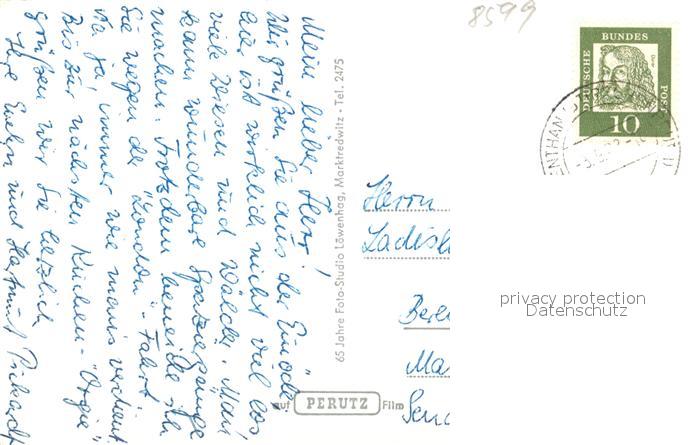 8599
Mein lieber Herr!
Wir grüßen Sie aus der Einöde
hier ist wirklich nicht viel los
viele Wiesen und Wälder. Man
kann wunderbare Spaziergänge
machen. Trotzdem beneide ich
Sie wegen der "London"-Fahrt.
ja immer wie man's verdient.
Bis zur nächsten Küchen-"Orgie"
grüßen wir Sie herzlich
Ihre Evelyn und Hartmut
65 Jahre Foto-Studio Löwenhag, Marktredwitz - Tel. 2475
auf PERUTZ Film
DEUTSCHE BUNDES POST
10
Herrn
Ladisl
Berl
Ma
privacy protection
Datenschutz